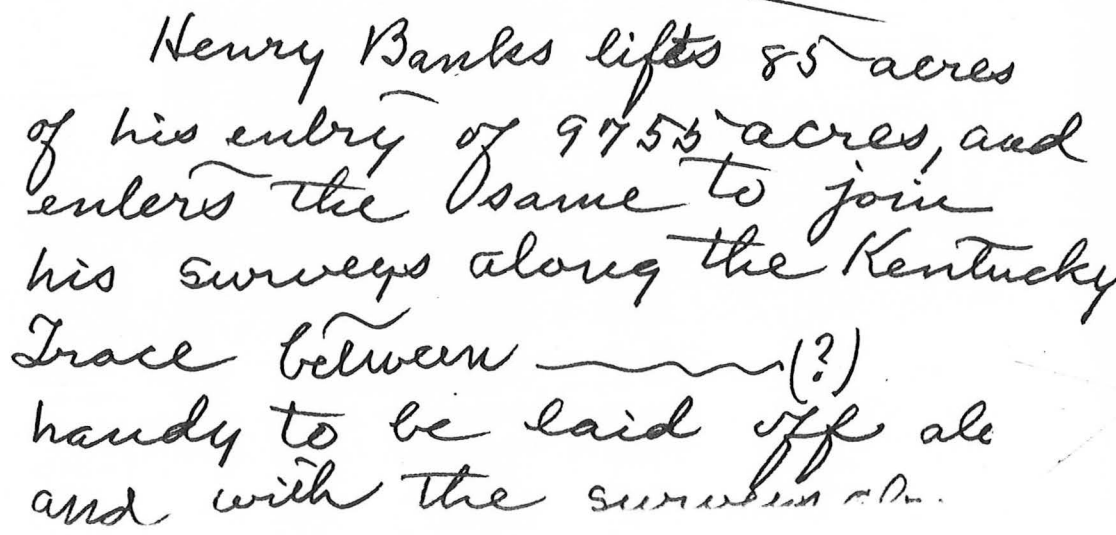 Henry Banks lifts 85 acres
of his entry of 9755 acres, and
enters the same to join
his surveys along the Kentucky
Trace between (?)
handy to be laid off
and with the